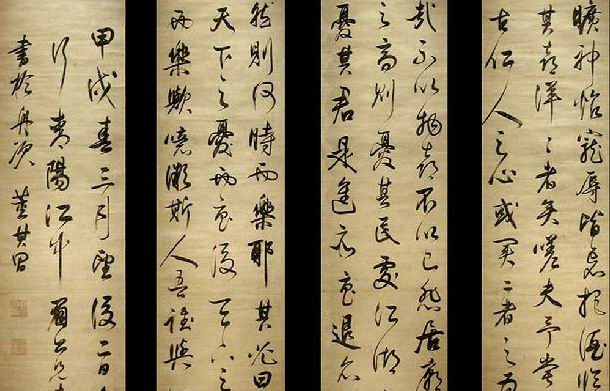 曠神怡寵辱皆忘把酒臨
其喜洋々者矣嗟夫予嘗
古仁人之心或異二者之為
哉不以物喜不以己悲居廟
之高則憂其民處江湖
憂其君是進亦憂退亦
然則何時而樂耶其必曰
天下之憂而憂後天下之
而樂歟噫微斯人吾誰與
甲戌春三月望後二日
行青陽江中
書於舟次 董其昌